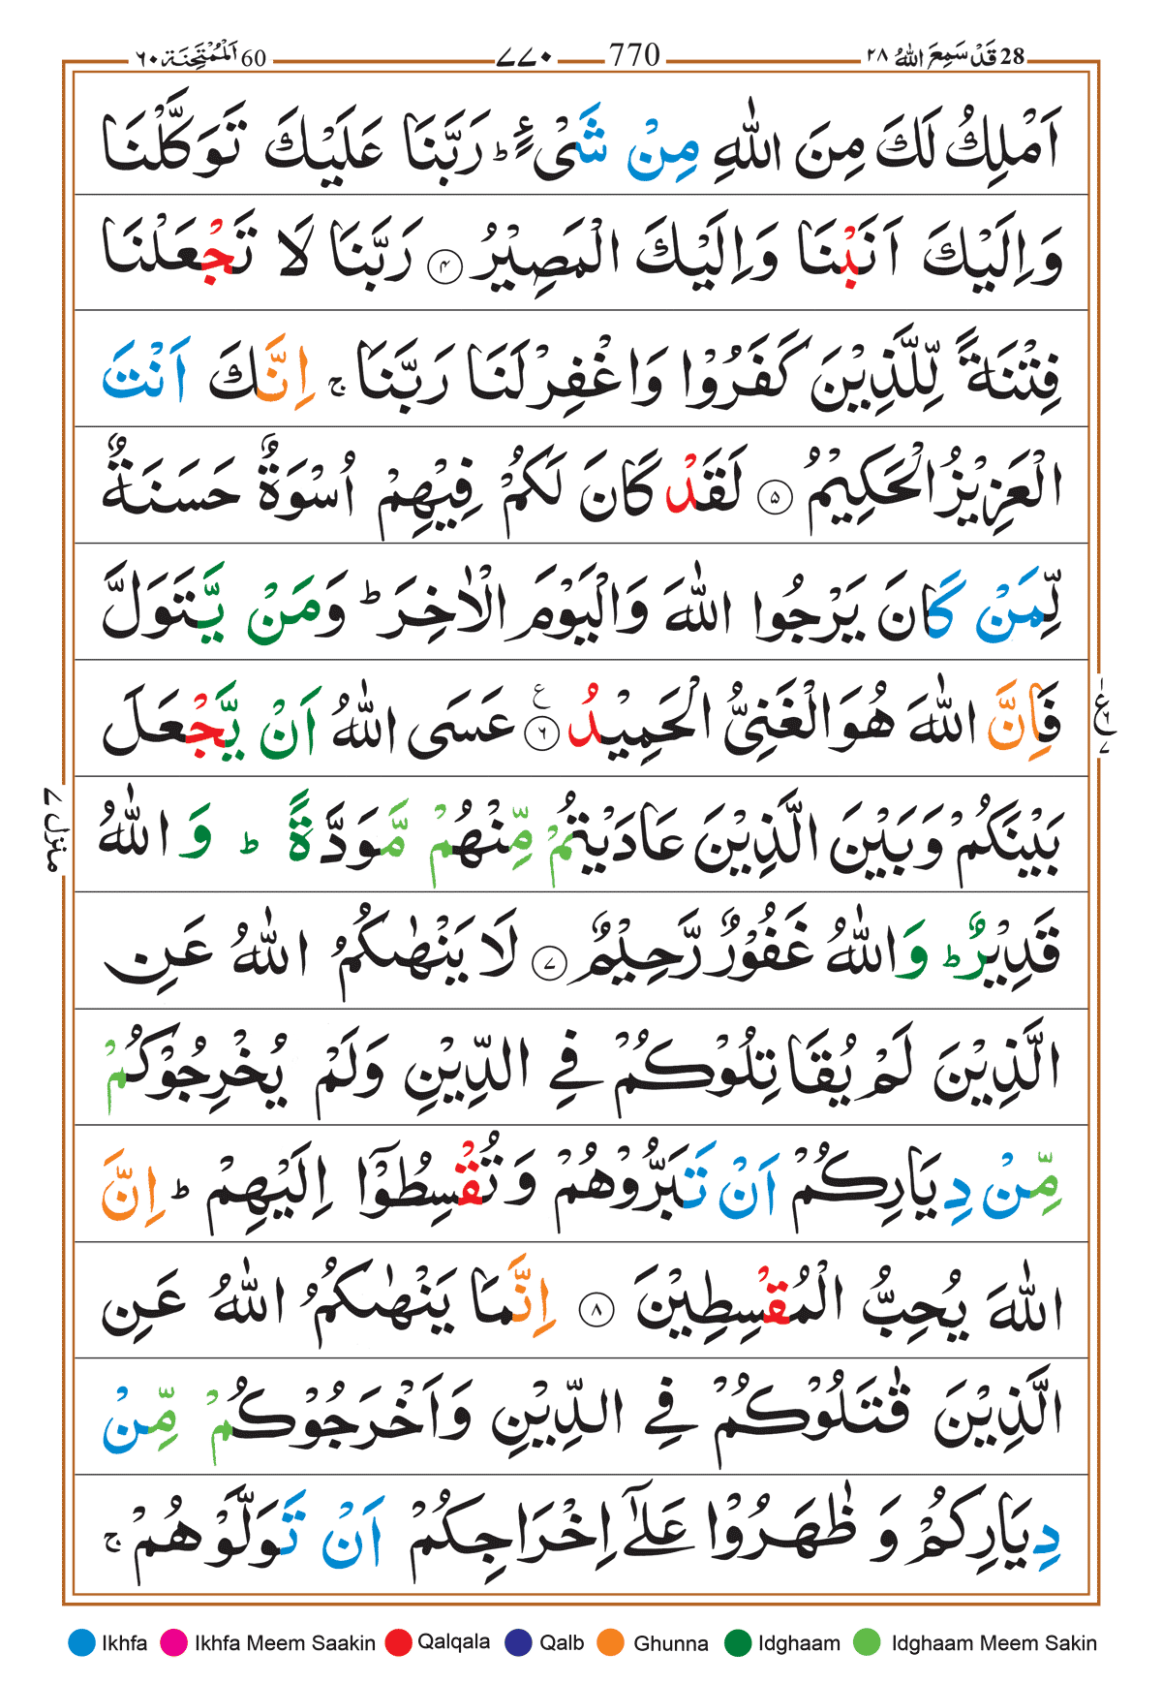 60 اَلْمُمْتَحِنَة ٦٠ ٧٧٠ 770 28 قَدْ سَمِعَ اللّٰهُ ٢٨
اَمْلِكُ لَكَ مِنَ اللّٰهِ مِنْ شَیْءٍ ؕ رَبَّنَا عَلَیْكَ تَوَكَّلْنَا
وَاِلَیْكَ اَنَبْنَا وَاِلَیْكَ الْمَصِیْرُ ﴿۴﴾ رَبَّنَا لَا تَجْعَلْنَا
فِتْنَةً لِّلَّذِیْنَ كَفَرُوْا وَاغْفِرْلَنَا رَبَّنَا ۚ اِنَّكَ اَنْتَ
الْعَزِیْزُ الْحَكِیْمُ ﴿۵﴾ لَقَدْ كَانَ لَكُمْ فِیْهِمْ اُسْوَةٌ حَسَنَةٌ
لِّمَنْ كَانَ یَرْجُوا اللّٰهَ وَالْیَوْمَ الْاٰخِرَ ؕ وَمَنْ یَّتَوَلَّ
فَاِنَّ اللّٰهَ هُوَالْغَنِیُّ الْحَمِیْدُ ﴿۶﴾ ع عَسَی اللّٰهُ اَنْ یَّجْعَلَ
بَیْنَكُمْ وَبَیْنَ الَّذِیْنَ عَادَیْتُمْ مِّنْهُمْ مَّوَدَّةً ؕ وَ اللّٰهُ
قَدِیْرٌ ؕ وَاللّٰهُ غَفُوْرٌ رَّحِیْمٌ ﴿۷﴾ لَا یَنْهٰىكُمُ اللّٰهُ عَنِ
الَّذِیْنَ لَمْ یُقَاتِلُوْكُمْ فِی الدِّیْنِ وَلَمْ یُخْرِجُوْكُمْ
مِّنْ دِیَارِكُمْ اَنْ تَبَرُّوْهُمْ وَتُقْسِطُوْۤا اِلَیْهِمْ ؕ اِنَّ
اللّٰهَ یُحِبُّ الْمُقْسِطِیْنَ ﴿۸﴾ اِنَّمَا یَنْهٰىكُمُ اللّٰهُ عَنِ
الَّذِیْنَ قٰتَلُوْكُمْ فِی الدِّیْنِ وَاَخْرَجُوْكُمْ مِّنْ
دِیَارِكُمْ وَ ظٰهَرُوْا عَلٰۤی اِخْرَاجِكُمْ اَنْ تَوَلَّوْهُمْ ۚ
منزل ۷
Ikhfa Ikhfa Meem Saakin Qalqala Qalb Ghunna Idghaam Idghaam Meem Sakin